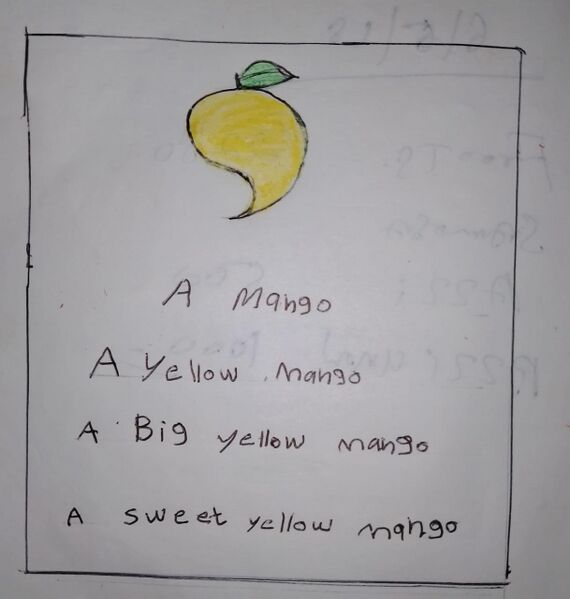 A Mango
A Yellow Mango
A Big yellow mango
A sweet yellow mango